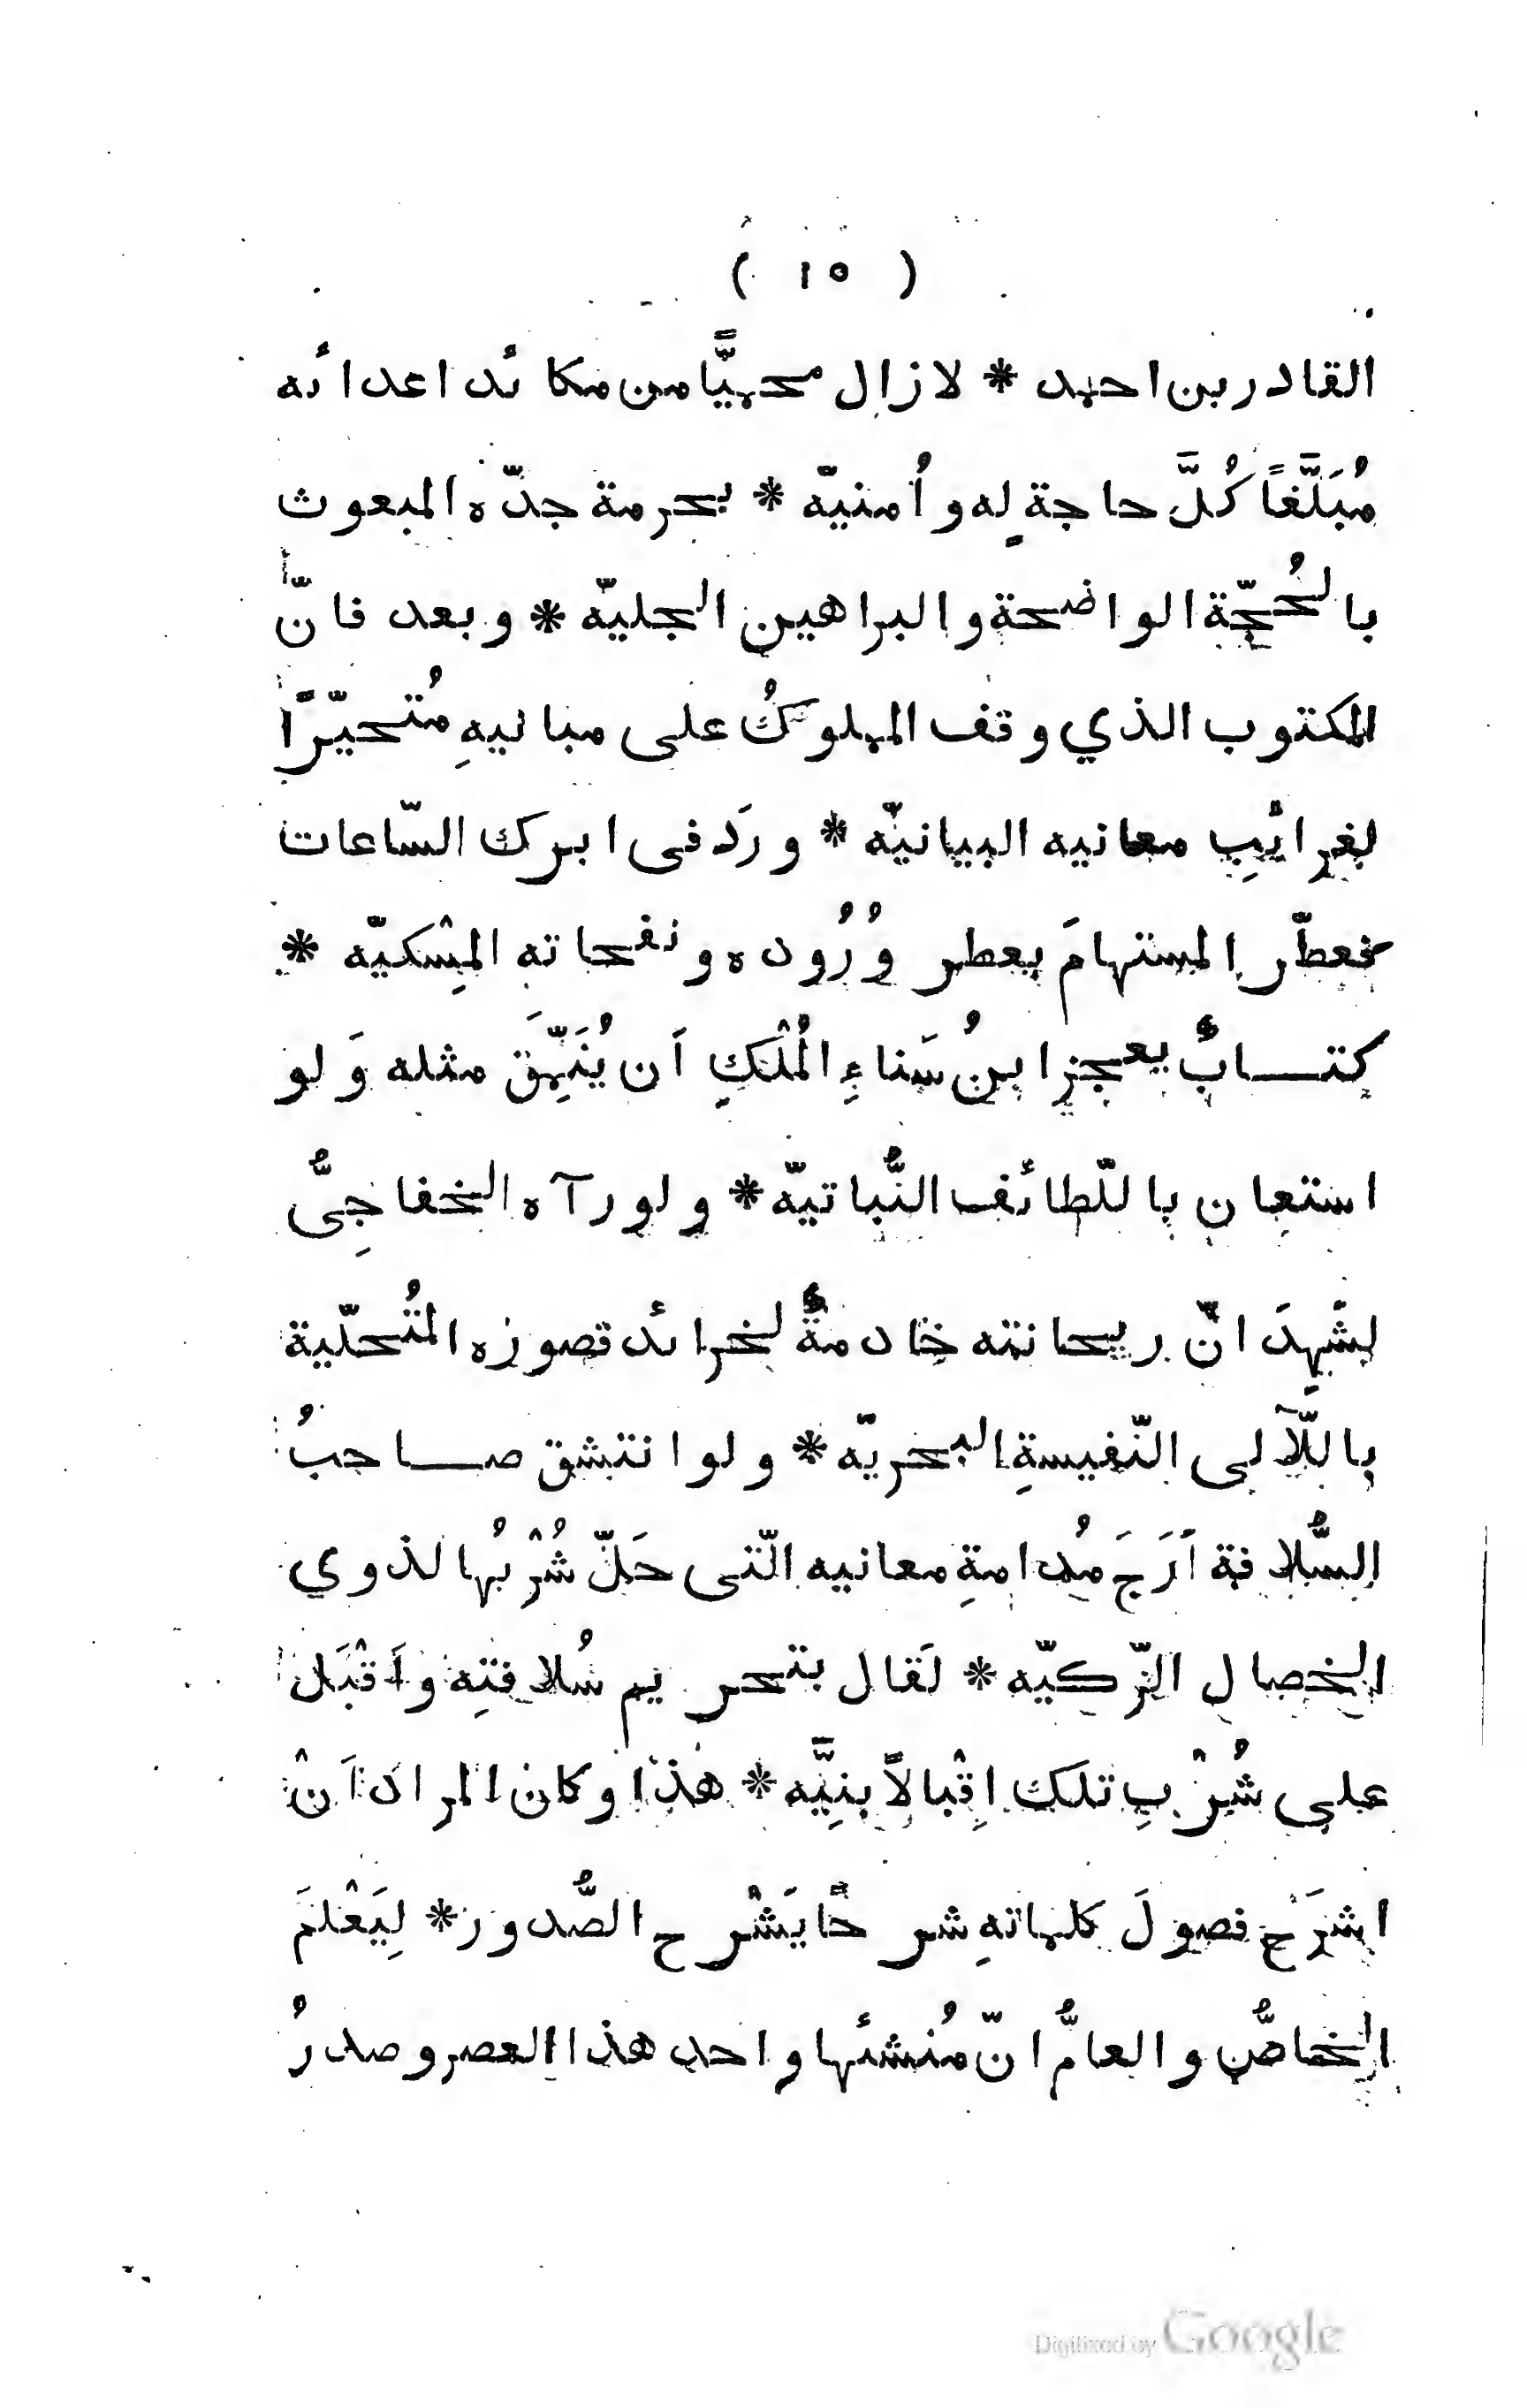 ( ١٥ )
القادر بن احمد * لا زال محميًّا من مكائد اعدائه
مُبَلَّغًا كُلَّ حاجةٍ له و اُمنيّه * بحرمة جدّه المبعوث
بالحُجّة الواضحة و البراهين الجليّه * و بعد فانّ
المكتوب الذي وقف المملوكُ على مبانيهِ مُتحيّرًا
لغرائبِ معانيه البيانيّه * و ردَ فى ابرك السّاعات
فعطّر المستهامَ بعطر وُرُوده و نفحاته المِسْكيّه *
كتابٌ يعجز ابنُ سَناءِ المُلْكِ اَن يُنَمِّقَ مثله وَ لو
استعان باللّطائف النُّباتيّه * و لو رآه الخفاجِىُّ
لشَهِدَ انّ ريحانته خادمةٌ لخرائد قصوره المُتحلّية
باللّآلى النّفيسةِ البحريّه * و لو انتشق صاحبُ
السُّلافة اَرَجَ مُدامةِ معانيه الّتى حَلّ شُرْبُها لذوي
الخصال الزّكيّه * لَقال بتحريم سُلافتِه و اَقْبَل
على شُرْبِ تلك اِقْبالاً بنِيَّه * هذا و كان المراد اَنْ
اشرَحَ فصولَ كلماتهِ شرحًا يَشْرح الصُّدور * لِيَعْلَمَ
الخاصُّ و العامُّ انّ مُنشئها واحد هذا العصر و صدرُ
Digitized by Google